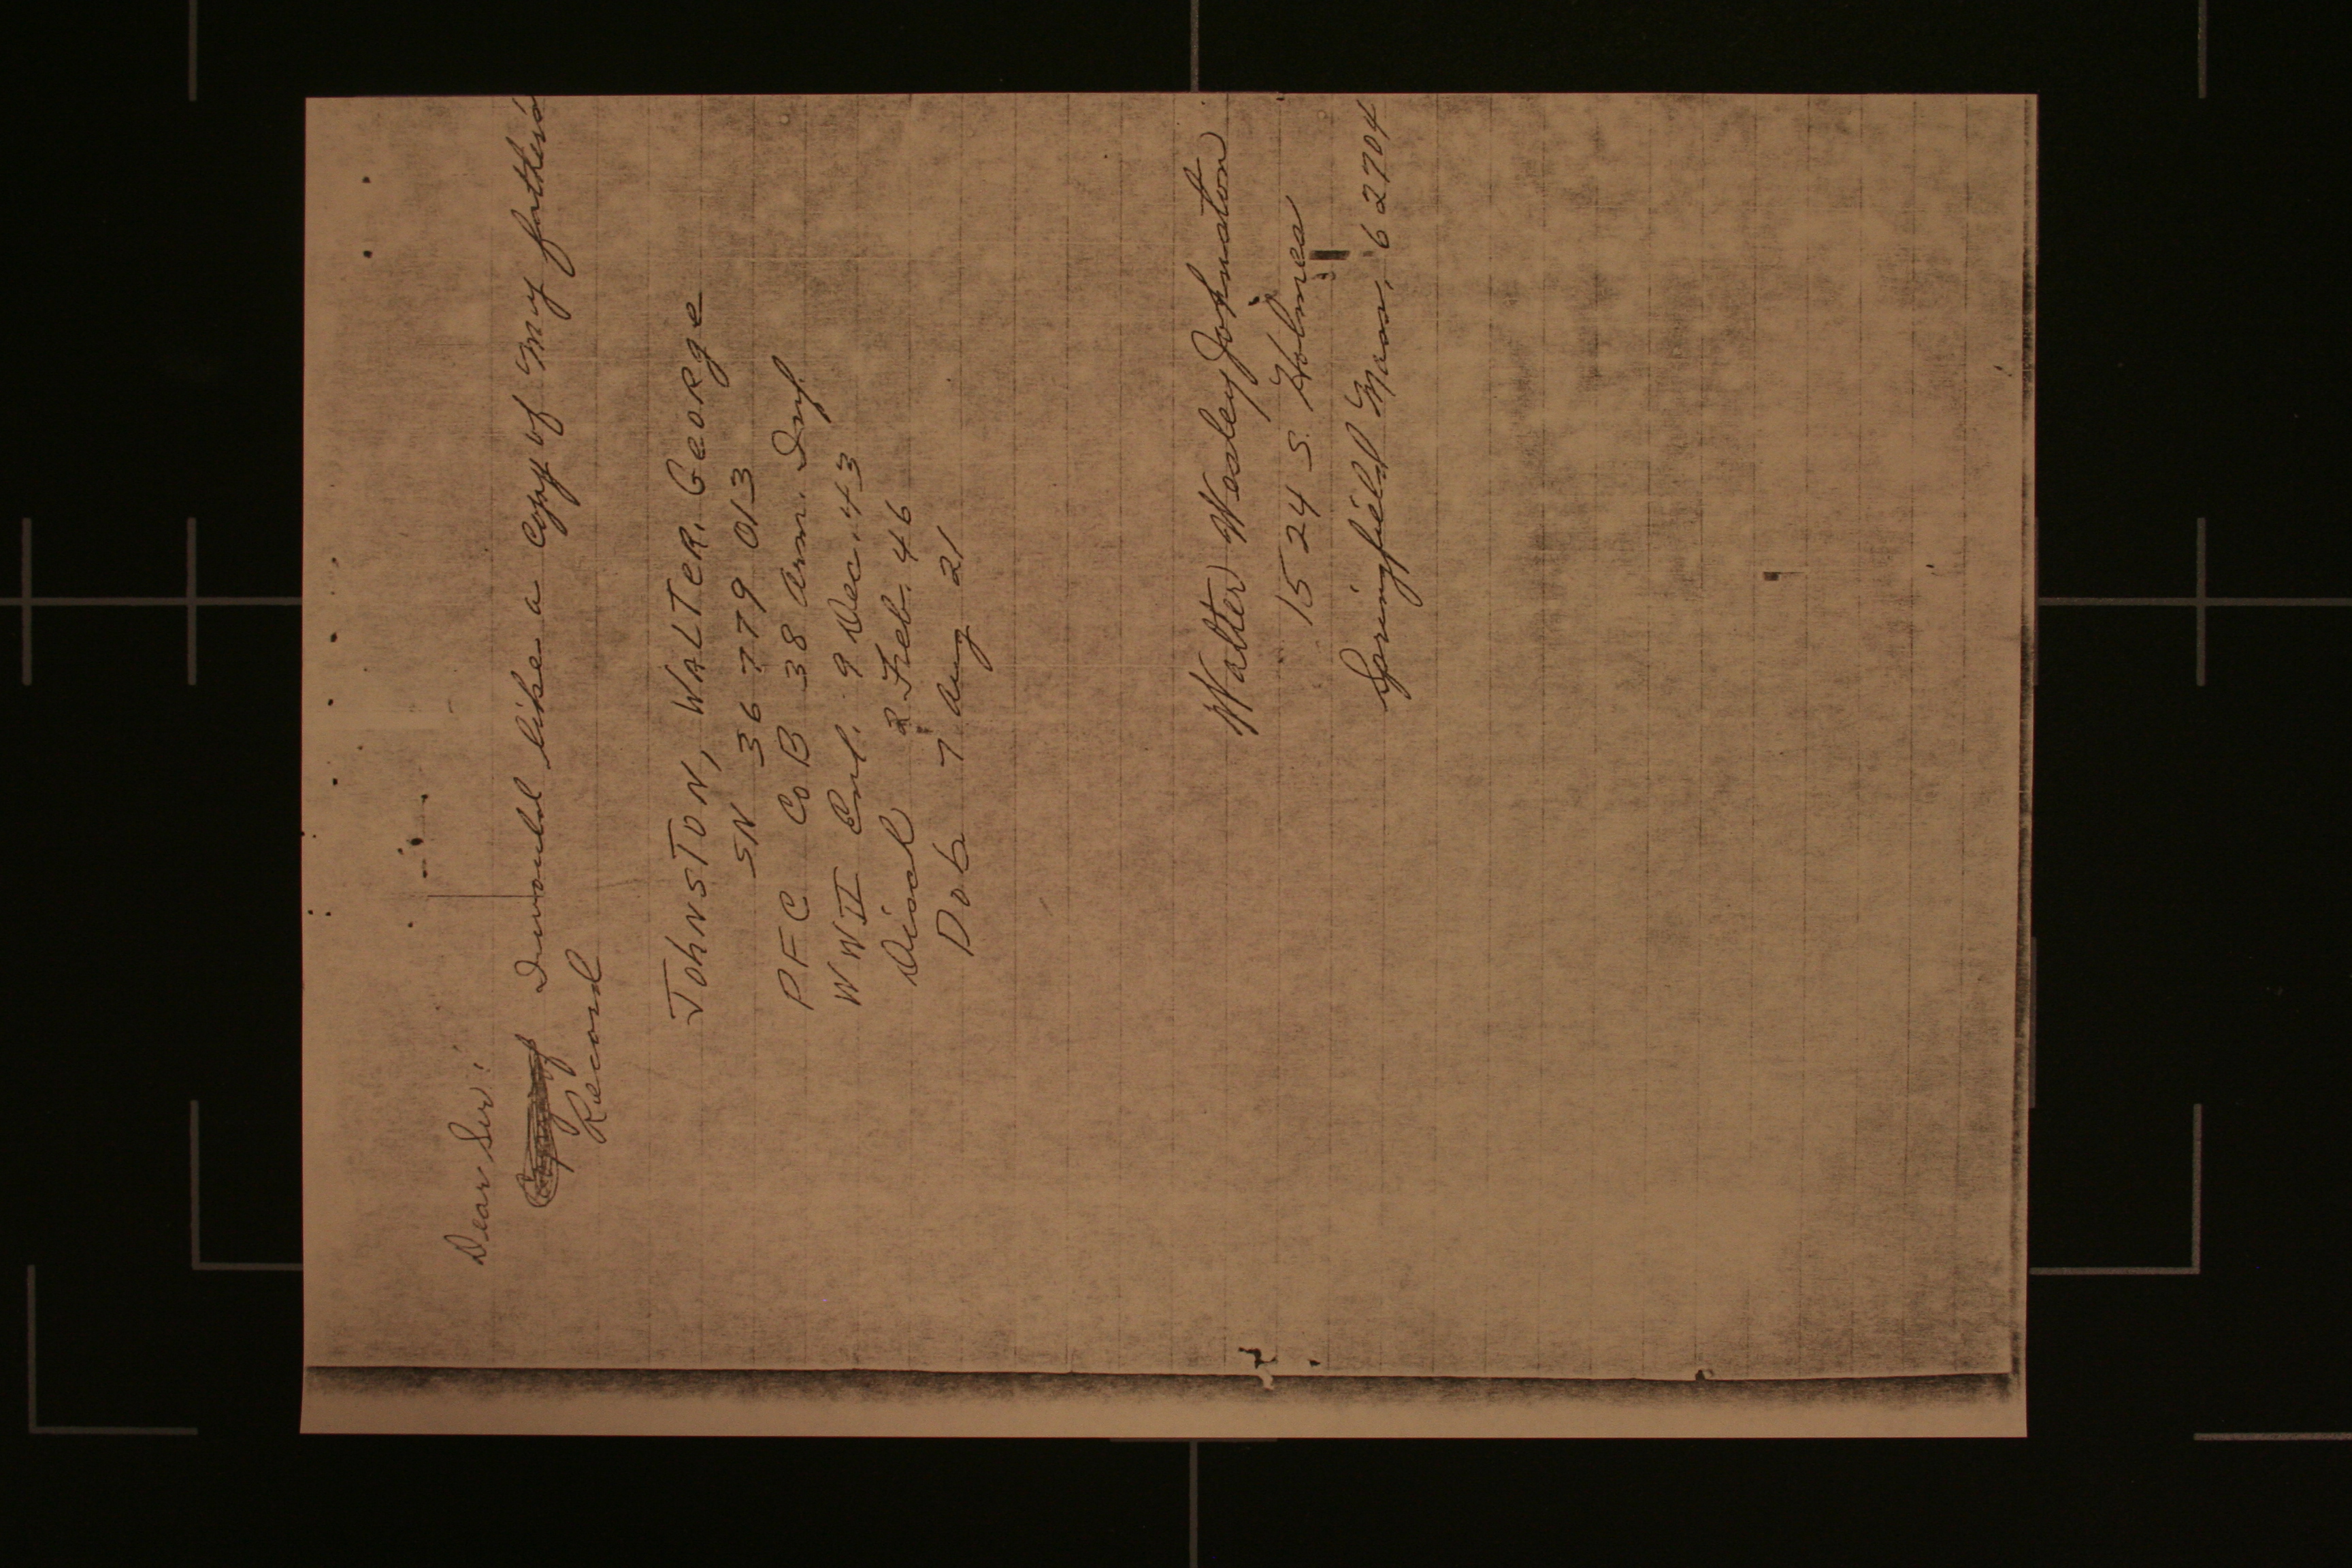 Dear Sir:
I would like a copy of My father's
Record
JOHNSTON, WALTER. GeORge
SN 36 779 013
PFC Co B 38 Arm. Inf.
WWII Enl. 9 Dec. 43
Disch 2 Feb. 46
Dob 7 Aug 21
Walter Wesley Johnston
1524 S. Holmes
Springfield Mass, 62704